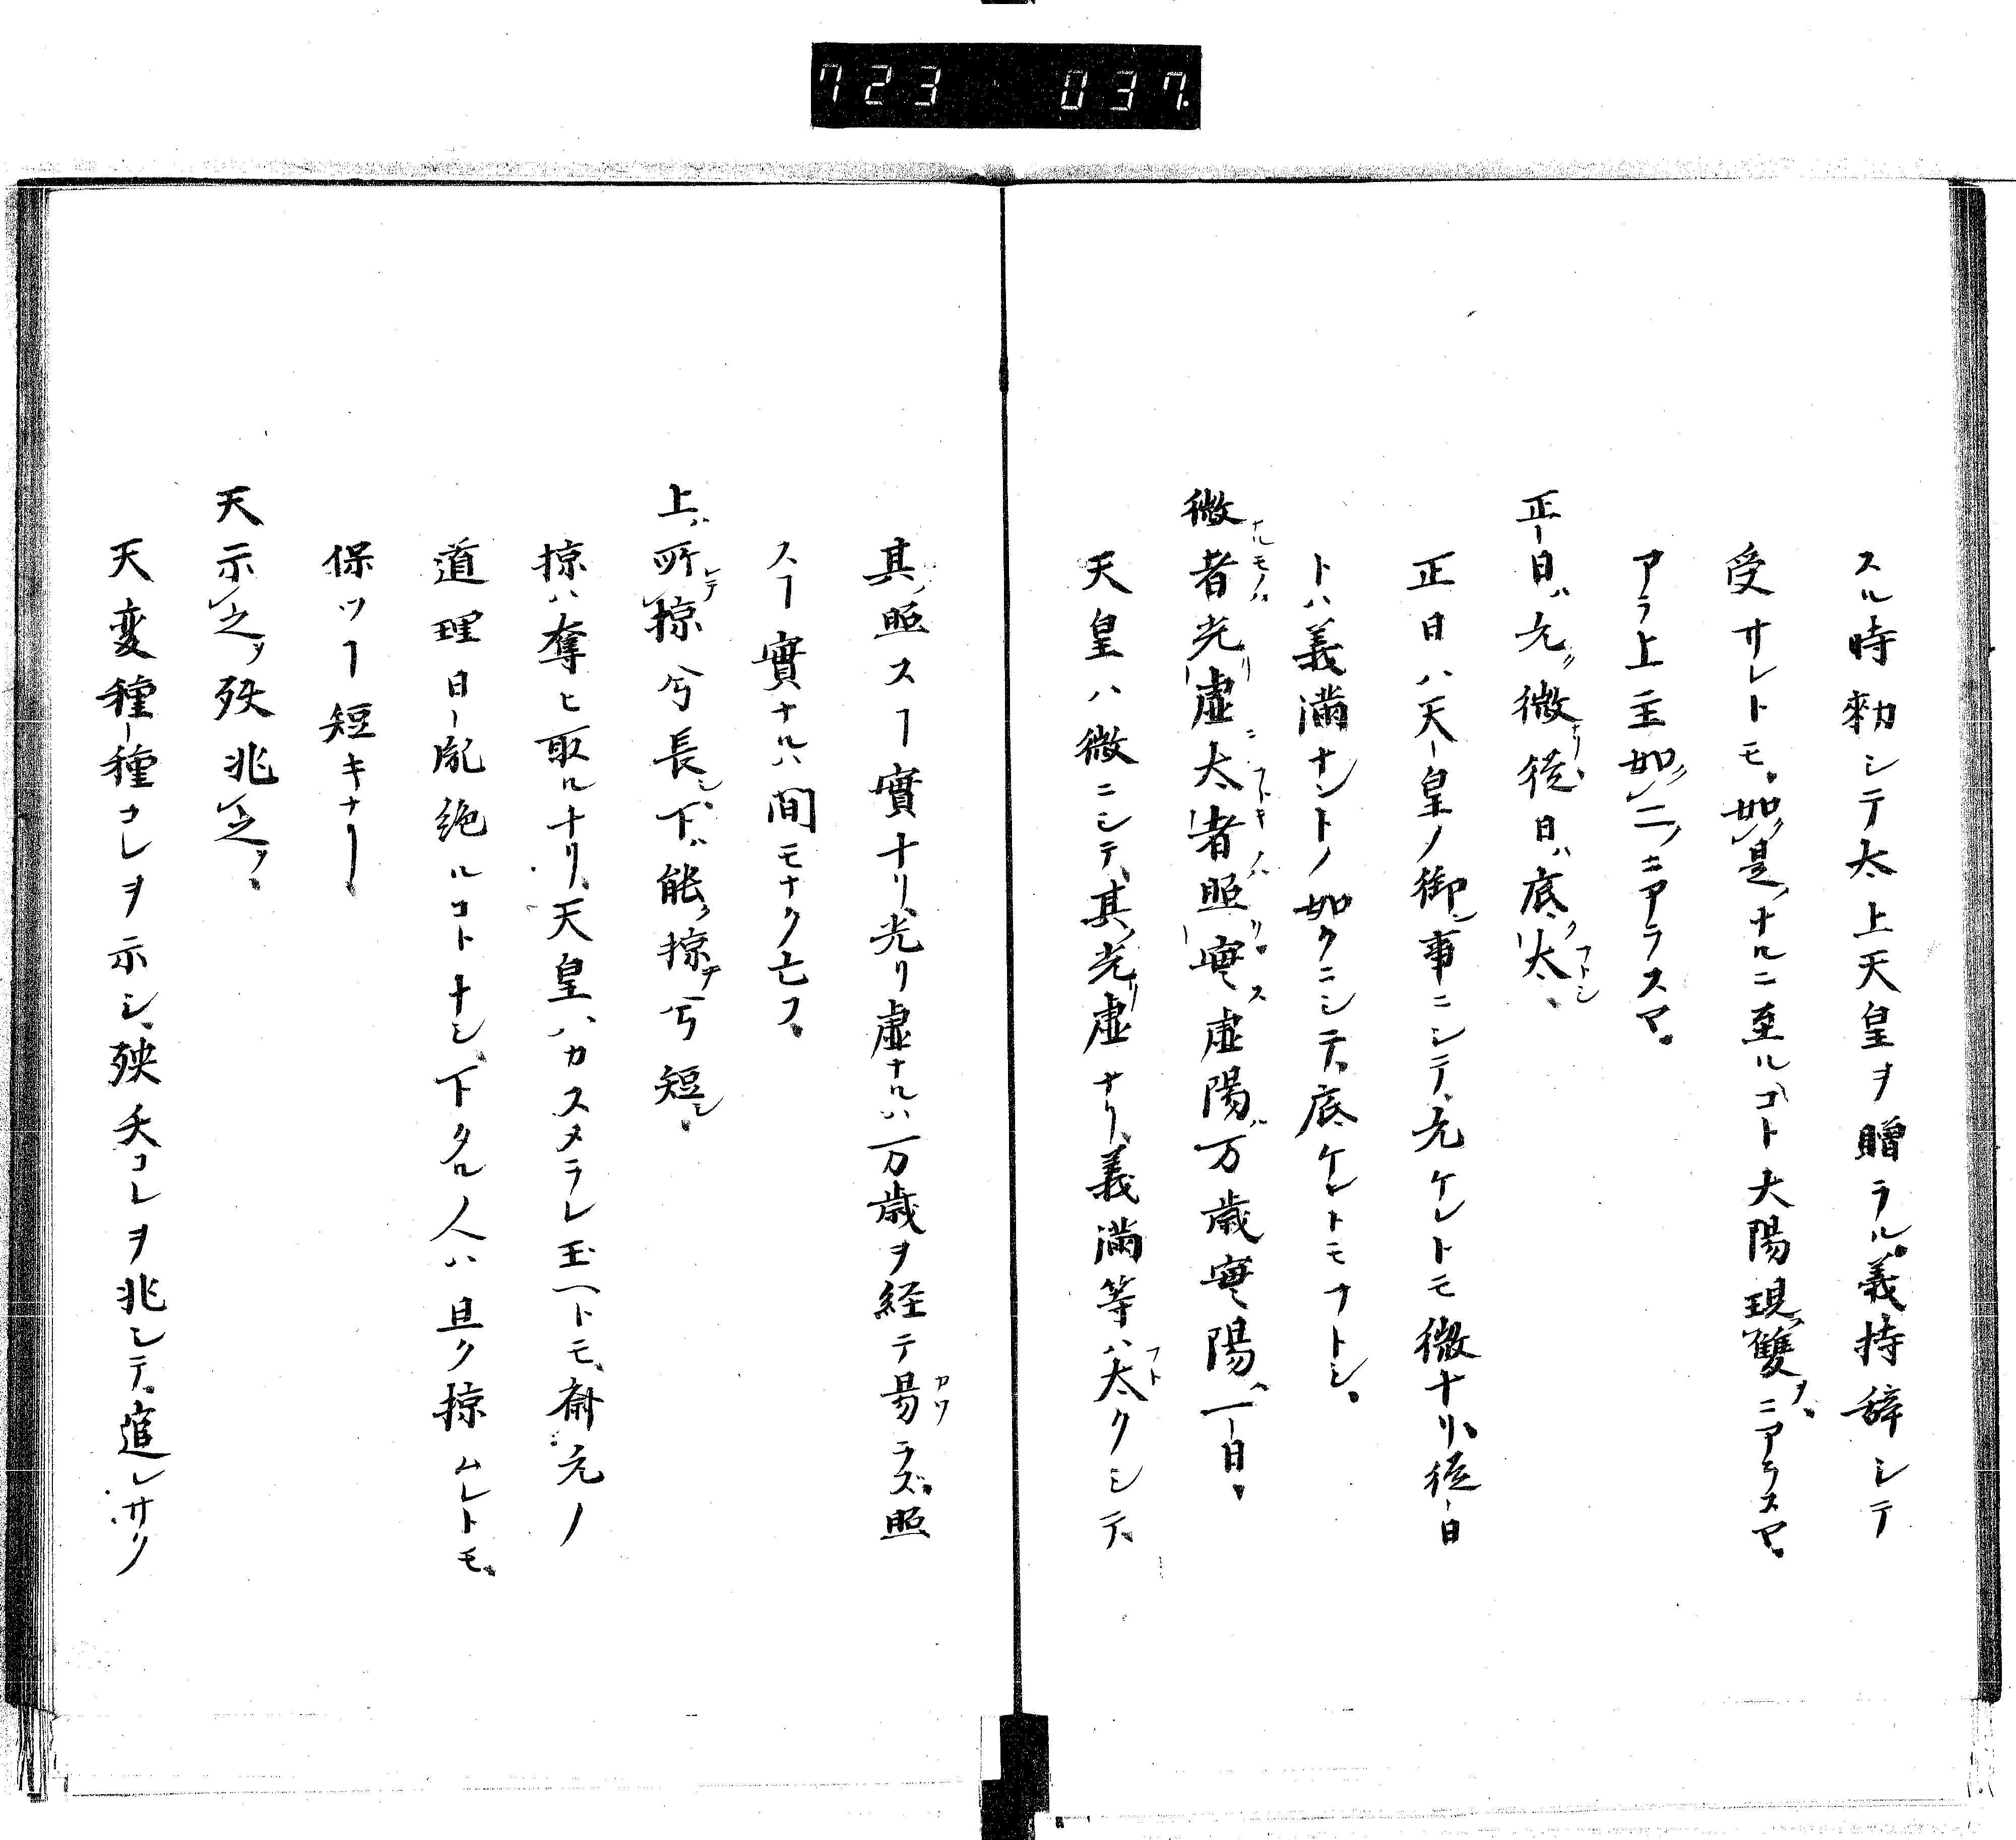 723 037
スル時勅シテ太上天皇ヲ贈ラル。義持辞シテ
受サレトモ。如是ナルニ至ルコト大陽現雙ヲ。ニアラスヤ。
アラ上主如ニニアラスマ。
正日ハ元微ナリ。後日ハ底太フトシ。
正日ハ天皇ノ御事ニシテ、元ケレトモ微ナリ、後日
トハ義満ナントノ如クニシテ。底ケレトモフトシ。
微者ナルモノハ光リ虚ニ太者フトキノハ照リ實ス虚陽ハ万歳實陽ハ一日。
天皇ハ微ニシテ、其光リ虚ナリ、義満等ハ太フトクシテ、
其照スヿ實ナリ、光リ虚ナルハ万歳ヲ経テ易カワラズ。照
スヿ實ナルハ間モナク亡フ。
上ハ所レテ掠兮長シ、下ハ能ク掠テ兮短シ。
掠ハ奪ヒ取ルナリ、天皇ハカスメラレ玉ヘトモ、斎元ノ
道理日胤絶ルコトナシ、下タル人ハ且ク掠ムレトモ。
保ツヿ短キナリ。
天示之ヲ殀兆之ヲ。
天変種種コレヲ示シ、殃夭コレヲ兆シテ。遁レサク